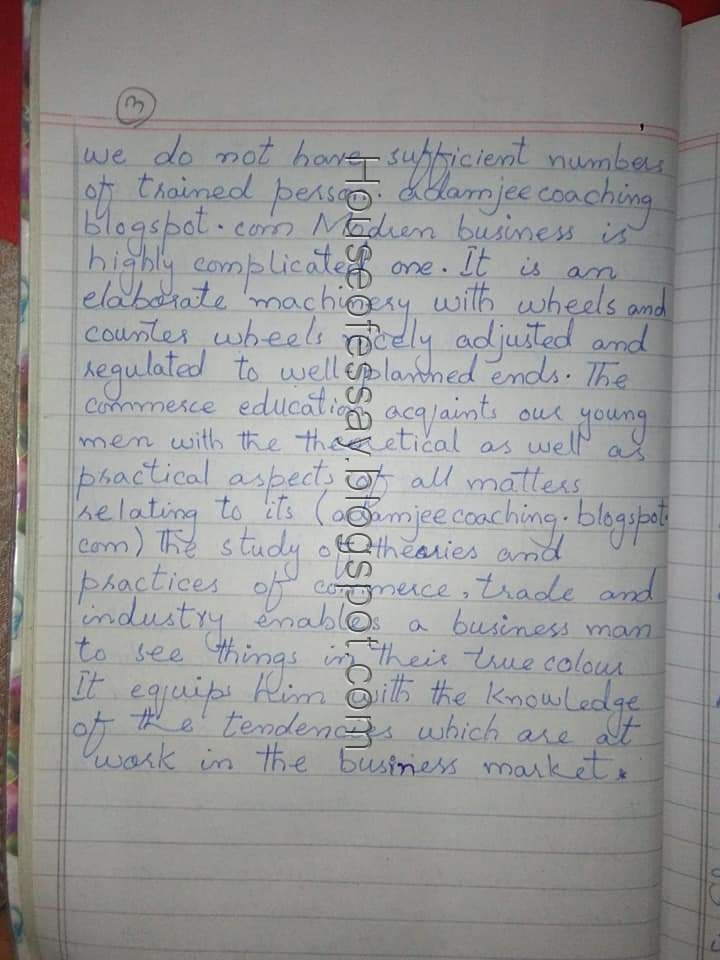 3
we do not have sufficient numbers
of trained person. adamjeecoaching
blogspot.com Modren business is
highly complicated one. It is an
elaborate machinery with wheels and
counter wheels nicely adjusted and
regulated to well planned ends. The
commerce education acqaints our young
men with the theoretical as well as
practical aspects of all matters
relating to its (adamjeecoaching.blogspot.
com) The study of theories and
practices of commerce, trade and
industry enables a business man
to see things in their true colour
It equips him with the knowledge
of the tendencies which are at
work in the business market.
Houseofessay.blogspot.com